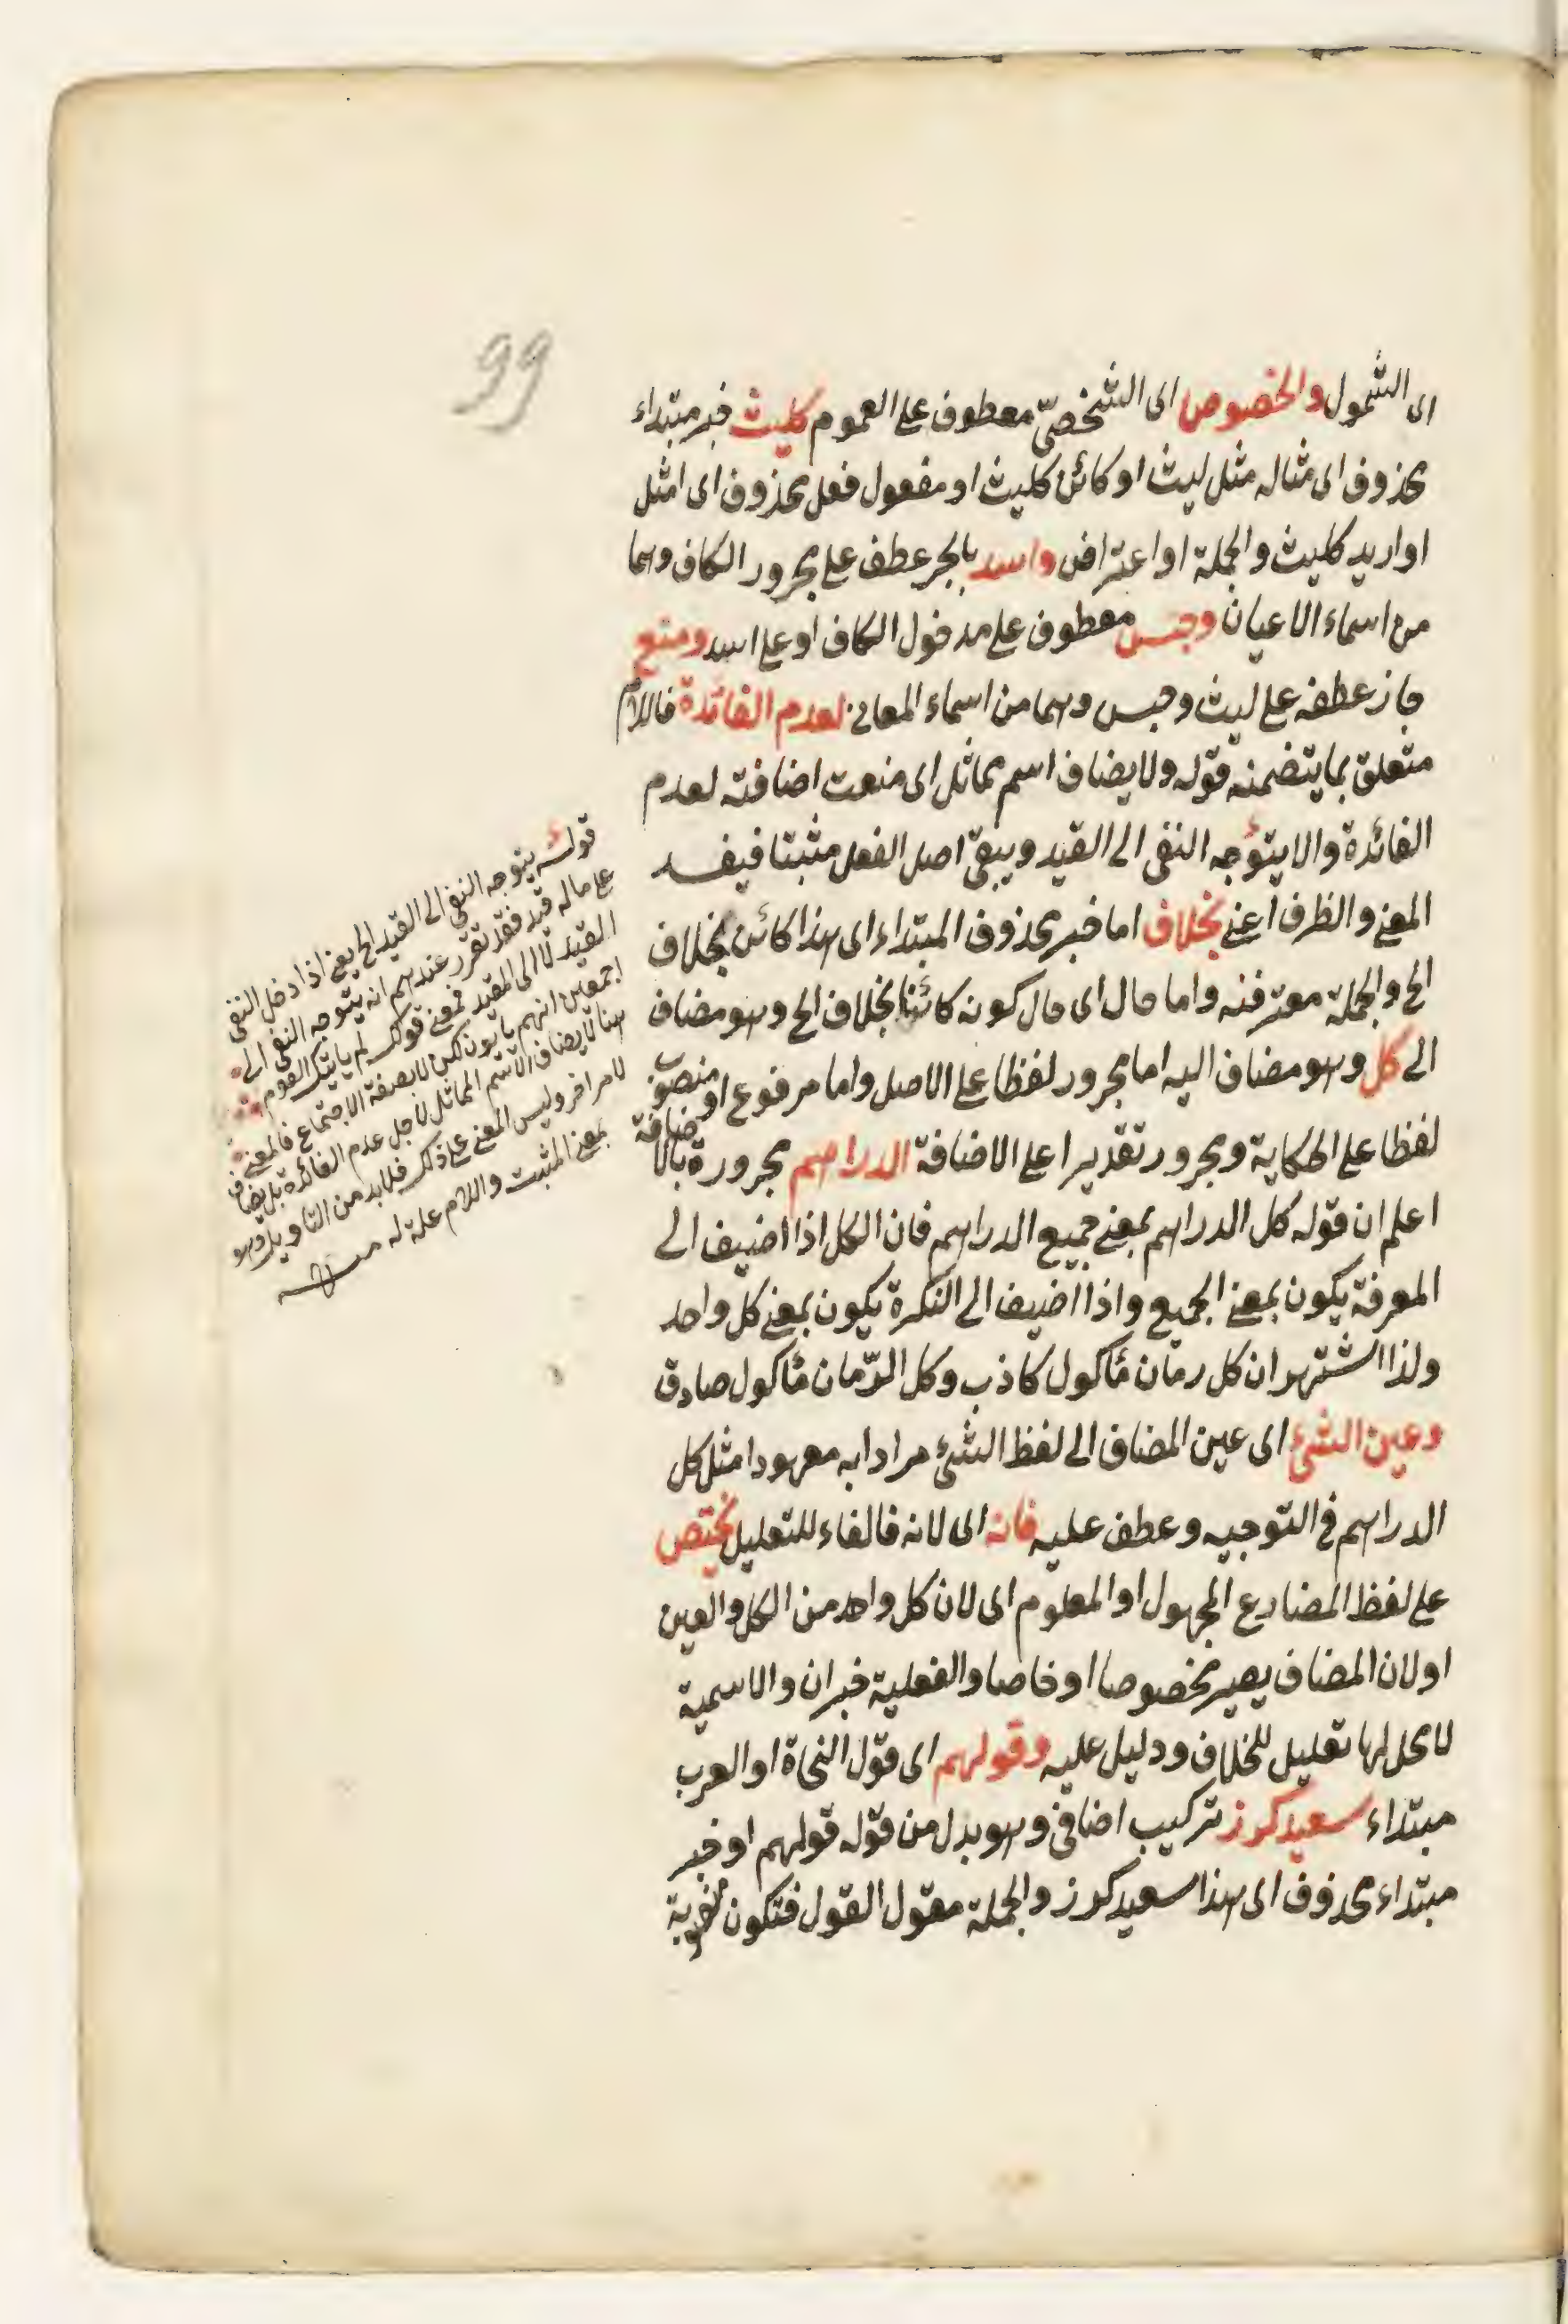 99
اى الشمول والخصوص اى التشخصّ معطوف على العموم كليث خبر مبتداء
محذوف اى مثاله مثل ليث او كائن كليث او مفعول فعل محذوف اى امثل
او اريد كليث والجملة اواعتراض واسد بالجر عطف على مجرور الكاف وهما
من اسماء الاعيان وحبس معطوف على مدخول الكاف او على اسد ومنع
جاز عطفه على ليث وحبس وهما من اسماء المعانى لعدم الفائدة فاللام
متعلق بما يتضمنه قوله ولا يضاف اسم مماثل اى منعت اضافته لعدم
الفائدة والا يتوجه النفى الى القيد ويبقى اصل الفعل مثبتا فيفسد
المعنى والظرف اعنى بخلاف اما خبر محذوف المبتداء اى هذا كائن بخلاف
الخ والجملة معترضة واما حال اى حال كونه كائنا بخلاف الخ وهو مضاف
الى كل وهو مضاف اليه اما مجرور لفظا على الاصل واما مرفوع او منصوب
لفظا على الحكاية ومجرور تقديرا على الاضافة الدراهم مجرورة بالاضافة
اعلم ان قوله كل الدراهم بمعنى جميع الدراهم فان الكل اذا اضيف الى
المعرفة يكون بمعنى الجميع واذا اضيف الى النكرة يكون بمعنى كل واحد
ولذا اشتهر ان كل رمان مأكول كاذب وكل الرّمان مأكول صادق
وعين الشئ اى عين المضاف الى لفظ الشئ مرادا به معهودا مثل كل
الدراهم فى التوجيه وعطف عليه فانه اى لانه فالفاء للتعليل يختص
على لفظ المضارع المجهول او المعلوم اى لان كل واحد من الكل والعين
او لان المضاف يصير مخصوصا او خاصا والفعلية خبر ان والاسمية
لا محل لها تعليل للخلاف ودليل عليه وقولهم اى قول النحاة او العرب
مبتداء سعيد كرز تركيب اضافى وهو بدل من قوله قولهم او خبر
مبتداء محذوف اى هذا سعيد كرز والجملة مقول القول فتكون
قوله يتوجه النفى الى القيد الخ يعنى اذا دخل النفى
على ماله قيد فقد تقرر عندهم انه يتوجه النفى الى
القيد لا الى المقيد فمعنى قولك لم يأتيك القوم
اجمعين انهم يأتون لكن لا بصفة الاجتماع فالمعنى
هنا لا يضاف الاسم المماثل لاجل عدم الفائدة بل يضاف
لامر اخر وليس المعنى على ذلك فلابد من التاويل وهو
بمعنى المثبت واللام علة له منه